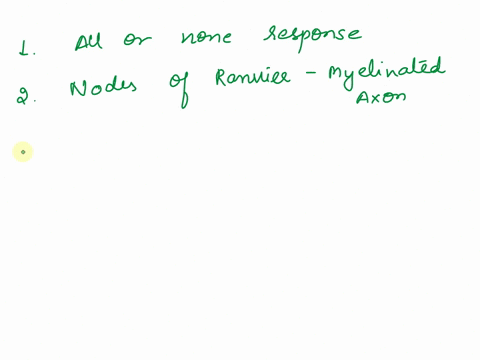 1. All or none response
2. Nodes of Ranvier - Myelinated
Axon